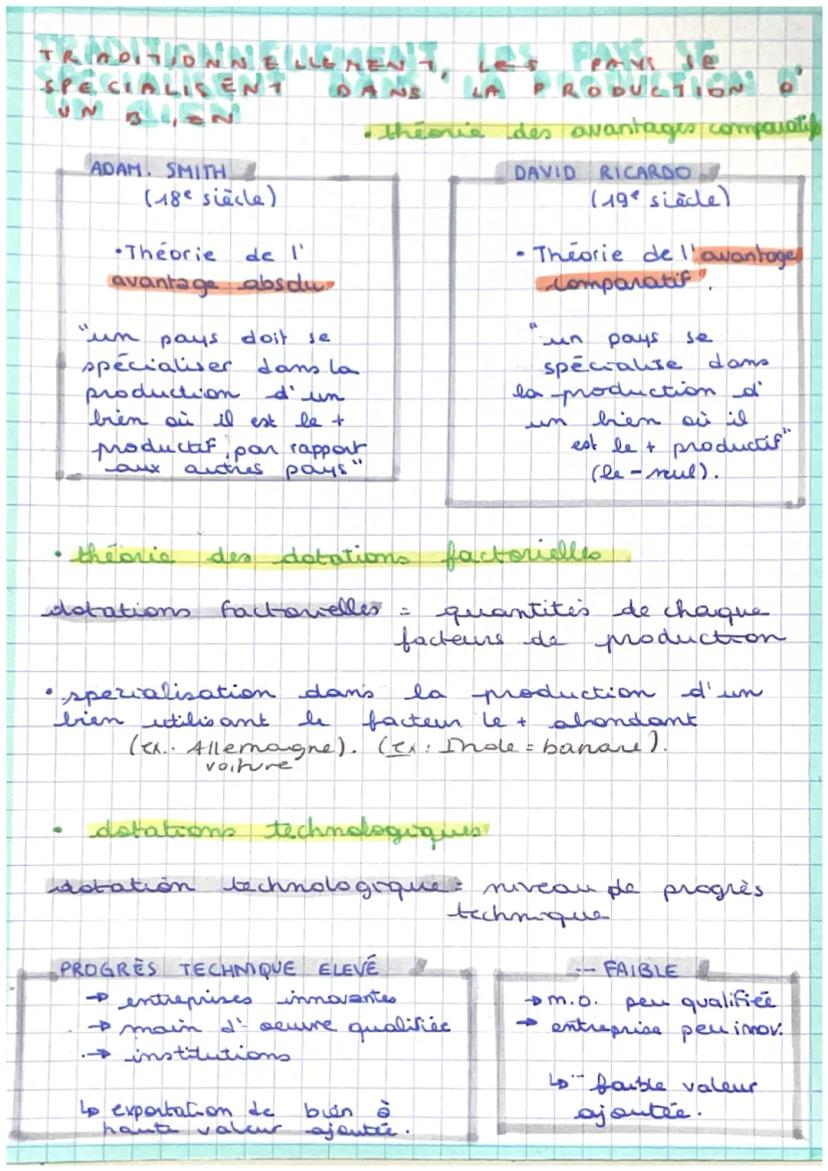 TRADITIONNELLEMENT, LES PAYS SE
SPECIALISENT DANS LA PRODUCTION D'
UN BIEN
• théorie des avantages comparatifs
ADAM. SMITH
(18e siècle)
•Théorie de l'
avantage absolu
"un pays doit se
spécialiser dans la
production d'un
bien où il est le +
productif par rapport
aux autres pays"
DAVID RICARDO
(19e siècle)
• Théorie de l'avantage
comparatif.
"un pays se
spécialise dans
la production d'
un bien où il
est le + productif"
(le - nul).
• théorie des dotations factorielles
dotations factorielles = quantités de chaque
facteurs de production
• specialisation dans la production d'un
bien utilisant le facteur le + abondant
(ex.: Allemagne). (Ex: Inde = banane).
voiture
• dotations technologiques
dotation technologique = niveau de progrès
technique
PROGRÈS TECHNIQUE ELEVÉ
→ entreprises innovantes
→ main d'oeuvre qualifiée
→ institutions
↳ exportation de bien à
haute valeur ajoutée.
-- FAIBLE
→ m.o. peu qualifiée
→ entreprise peu innov.
↳ -- faible valeur
ajoutée.